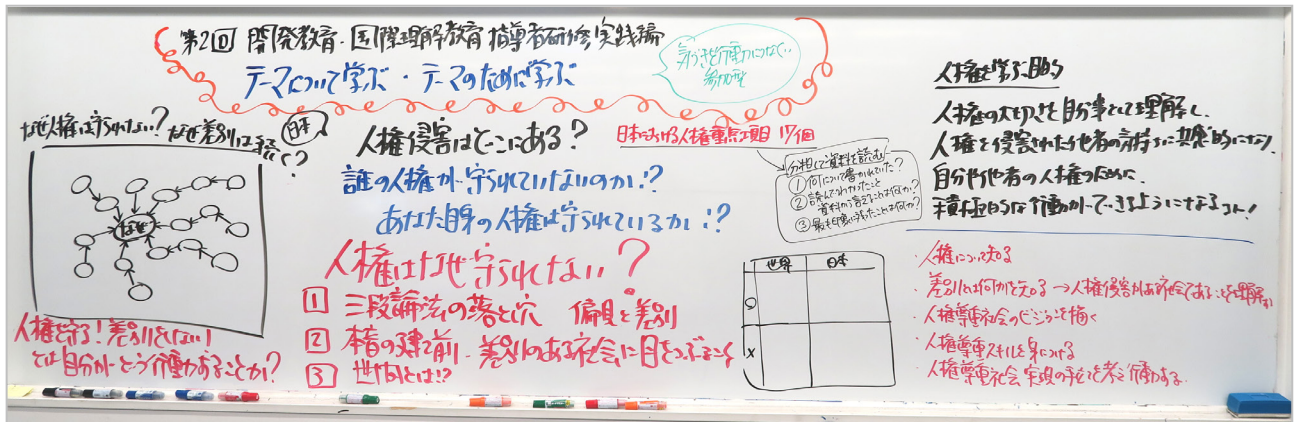 第2回 開発教育・国際理解教育 指導者研修 実践編
テーマについて学ぶ・テーマのために学ぶ
気づきを行動につなぐ
参加型
なぜ人権は守られない?
なぜ差別は続く?
日本
なぜ
人権を守る!差別をしない!
とは自分がどう行動することか?
人権侵害はどこにある?
誰の人権が守られていないのか!?
あなた自身の人権は守られているか!?
人権はなぜ守られない?
1 三段論法の落とし穴 偏見と差別
2 本音の建て前・差別のある社会に目をつぶること
3 世間とは!?
日本における人権重点項目 17個
分担して資料を読む
① 何について書かれていた?
② 読んでわかったこと
資料から言えることは何か?
③ 最も印象に残ったことは何か?
世界 日本
○
×
人権を学ぶ目的
人権の大切さを自分事として理解し、
人権を侵害された他者の気持ちに共感的になり
自分や他者の人権のために、
積極的な行動ができるようになること!
・人権について知る
・差別とは何かを知る→人権侵害がある社会であることを理解
・人権尊重社会のビジョンを描く
・人権尊重スキルを身につける
・人権尊重社会実現の手立てを考え行動する